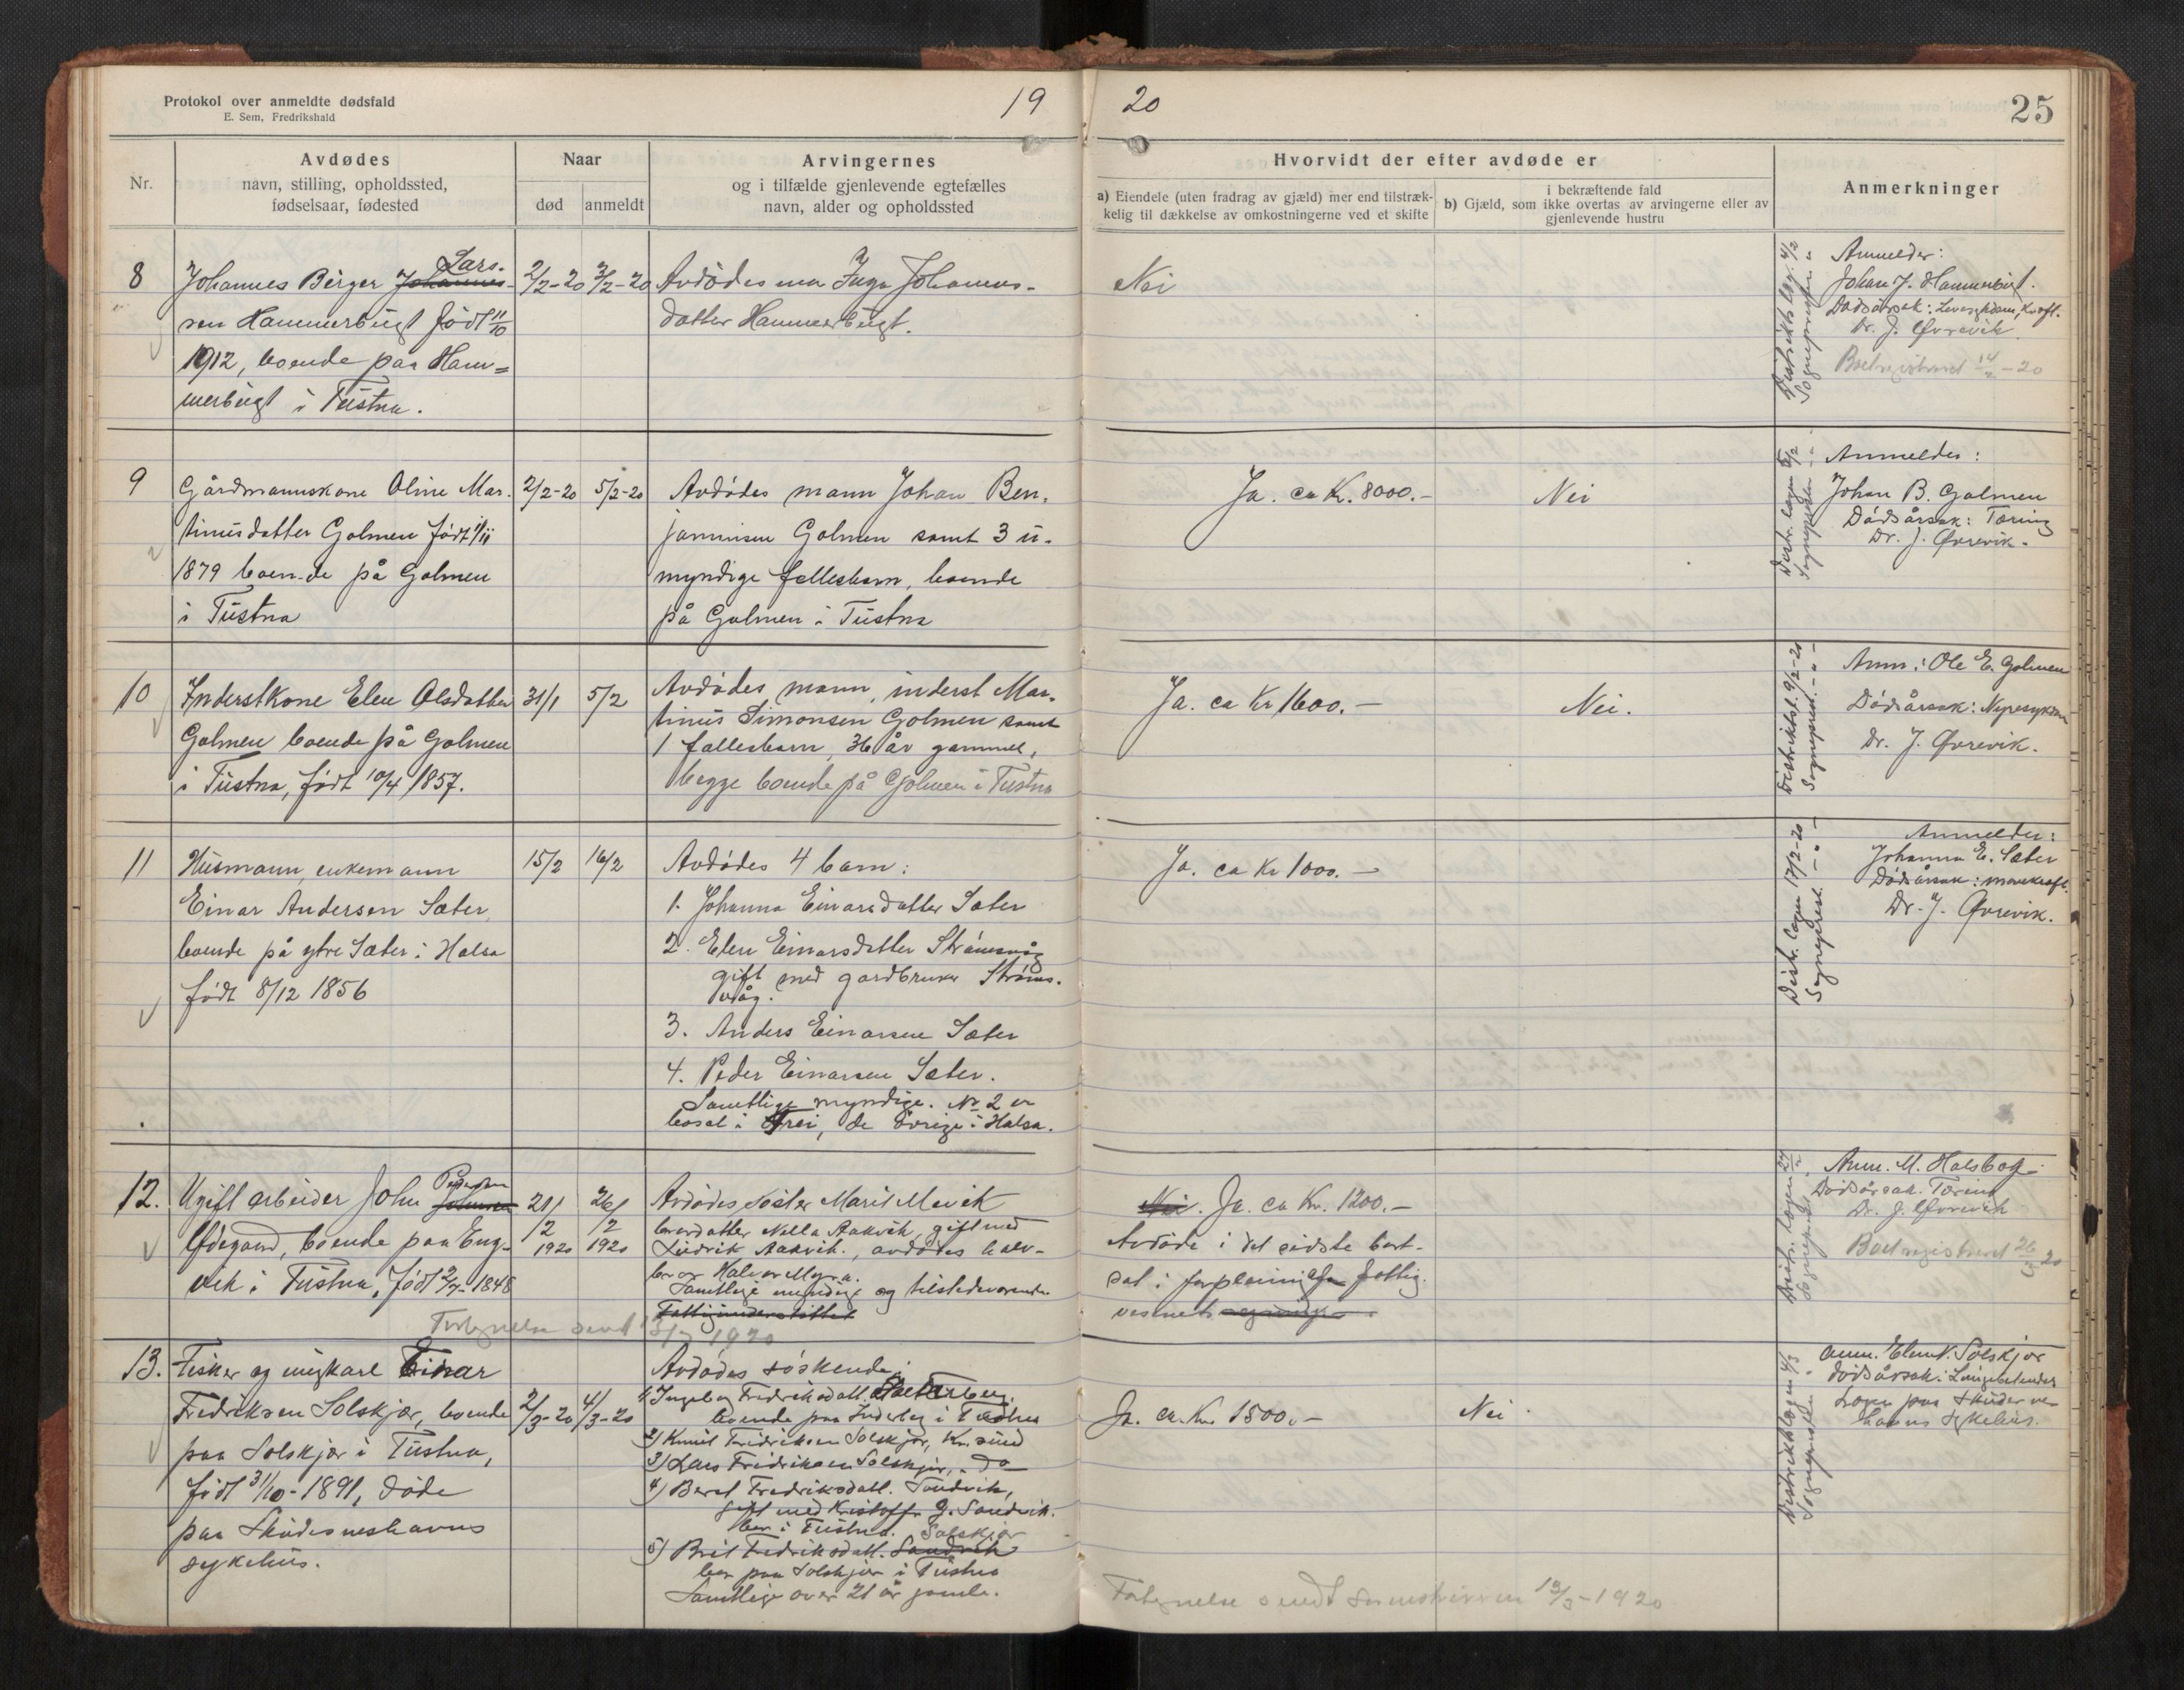 Protokol over anmeldte dødsfald
E. Sem, Fredrikshald
19
20
25
Nr.
Avdødes
navn, stilling, opholdssted,
fødselsaar, fødested
Naar
død
anmeldt
Arvingernes
og i tilfælde gjenlevende egtefælles
navn, alder og opholdssted
Hvorvidt der efter avdøde er
a) Eiendele (uten fradrag av gjæld) mer end tilstræk-
kelig til dækkelse av omkostningerne ved et skifte
i bekræftende fald
b) Gjæld, som ikke overtas av arvingerne eller av
gjenlevende hustru
Anmerkninger
8
Lars-
Johannes Birger Johannes-
sen Hammerbugt født 11/10
1912, boende paa Ham=
merbugt i Tustna.
2/2-20
3/2-20
Avdødes mor Inga Johannes-
datter Hammerbugt.
Nei
Anmelder:
Johan J. Hammerbugt.
Dødsårsak:
Dr. J. Øvrevik
Boet registreret 14/2-20
9
Gårdmannskone Oline Mar-
tinusdatter Golmen født 1/11
1879 boen-de på Golmen
i Tustna
2/2-20
5/2-20
Avdødes mann Johan Ben-
jaminsen Golmen samt 3 u-
myndige fellesbarn, boende
på Golmen i Tustna
Ja. ca Kr. 8000.-
Nei
Distr. lægen 5/2
Sognepresten - " -
Anmelder:
Johan B. Golmen
Dødsårsak: Tæring
Dr. J. Øvrevik.
10
Inderstkone Elen Olsdatter
Golmen boende på Golmen
i Tustna, født 10/4 1857.
31/1
5/2
Avdødes mann, inderst Mar-
tinus Simonsen Golmen samt
1 fellesbarn, 36 år gammel,
begge boende på Golmen i Tustna
Ja. ca Kr 1600.-
Nei.
Distriktsl. 9/2-20
Sogneprest. - " -
Anm: Ole E. Golmen
Dødsårsak: Nyresykdom
Dr. J. Øvrevik.
11
Husmann, enkemann
Einar Andersen Sæter,
boende på ytre Sæter i Halsa
født 8/12 1856
15/2
16/2
Avdødes 4 barn:
1. Johanna Einarsdatter Sæter
2. Elen Einarsdatter Strømsvåg
gift med gardbruker Strøms-
våg.
3. Anders Einarsen Sæter
4. Peder Einarsen Sæter.
Samtlige myndige. No 2 er
bosat i Frei, de øvrige i Halsa.
Ja. ca Kr 1000.-
Distr. lægen 17/2-20
Sogneprest. - " -
Anmelder:
Johanna E. Sæter
Dødsårsak: mavekræft.
Dr. J. Øvrevik.
12.
Pedersen
Ugift arbeider John Johnsen
Ødegaard, boende paa Eng-
vik i Tustna, født 2/7-1848
21/2 1920
26/2 1920
Avdødes søster Marit Mevik
brordatter Nella Aakvik, gift med
Ludvik Aakvik, avdødes halv-
bror Halvor Myra.
Samtlige myndige og tilstedeværende
Fattigunderstøttet
Nei. Ja. ca Kr. 1200.-
Avdøde i det sidste bort-
sat i forpleining for fattig-
vesnets regning
Anm. M. Halsbog
Dødsårsak. Tæring
Dr. J. Øvrevik
Boet registreret 26/3 20
Fortegnelse sendt 13/3 1920
13.
Fisker og ungkarl Einar
Fredriksen Solskjær, boende
paa Solskjær i Tustna,
født 31/10-1891, døde
paa Skudesneshavns
sykehus.
2/3-20
4/3-20
Avdødes søskende:
1) Ingeborg Fredriksdatt.
boende paa Inderberg i Tustna
2) Knut Fredriksen Solskjær, Kr.sund
3) Lars Fredriksen Solskjær, - do -
4) Beret Fredriksdatt. Sandvik,
gift med Kristoffer J. Sandvik
bor i Tustna.
Solskjær
5) Brit Fredriksdatt. Sandvik
bor paa Solskjær i Tustna
Samtlige over 21 år gamle.
Ja. ca. Kr. 1500.-
Nei
Distriktslægen 4/3
Sognepresten - " -
Anm. Elen K. Solskjær
dødsårsak: Lungebetendelse
Lægen paa Skudesnes-
havns sykehus.
Fortegnelse sendt Sorenskriveren 13/3-1920